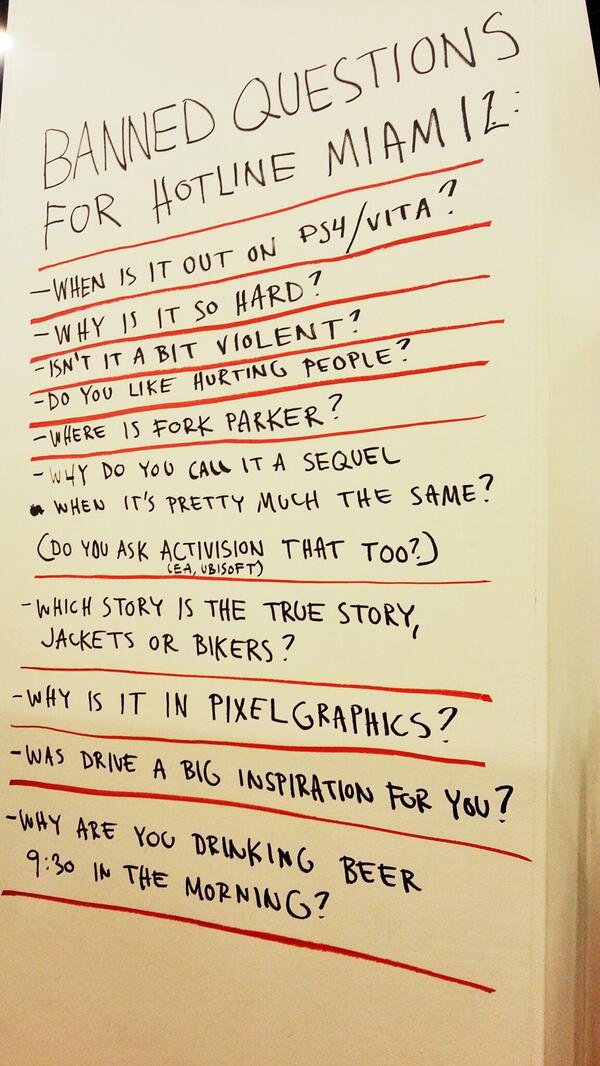 BANNED QUESTIONS
FOR HOTLINE MIAMI 2:
-WHEN IS IT OUT ON PS4/VITA?
-WHY IS IT SO HARD?
-ISN'T IT A BIT VIOLENT?
-DO YOU LIKE HURTING PEOPLE?
-WHERE IS FORK PARKER?
-WHY DO YOU CALL IT A SEQUEL
WHEN IT'S PRETTY MUCH THE SAME?
(DO YOU ASK ACTIVISION THAT TOO?)
(EA, UBISOFT)
-WHICH STORY IS THE TRUE STORY,
JACKETS OR BIKERS?
-WHY IS IT IN PIXELGRAPHICS?
-WAS DRIVE A BIG INSPIRATION FOR YOU?
-WHY ARE YOU DRINKING BEER
9:30 IN THE MORNING?